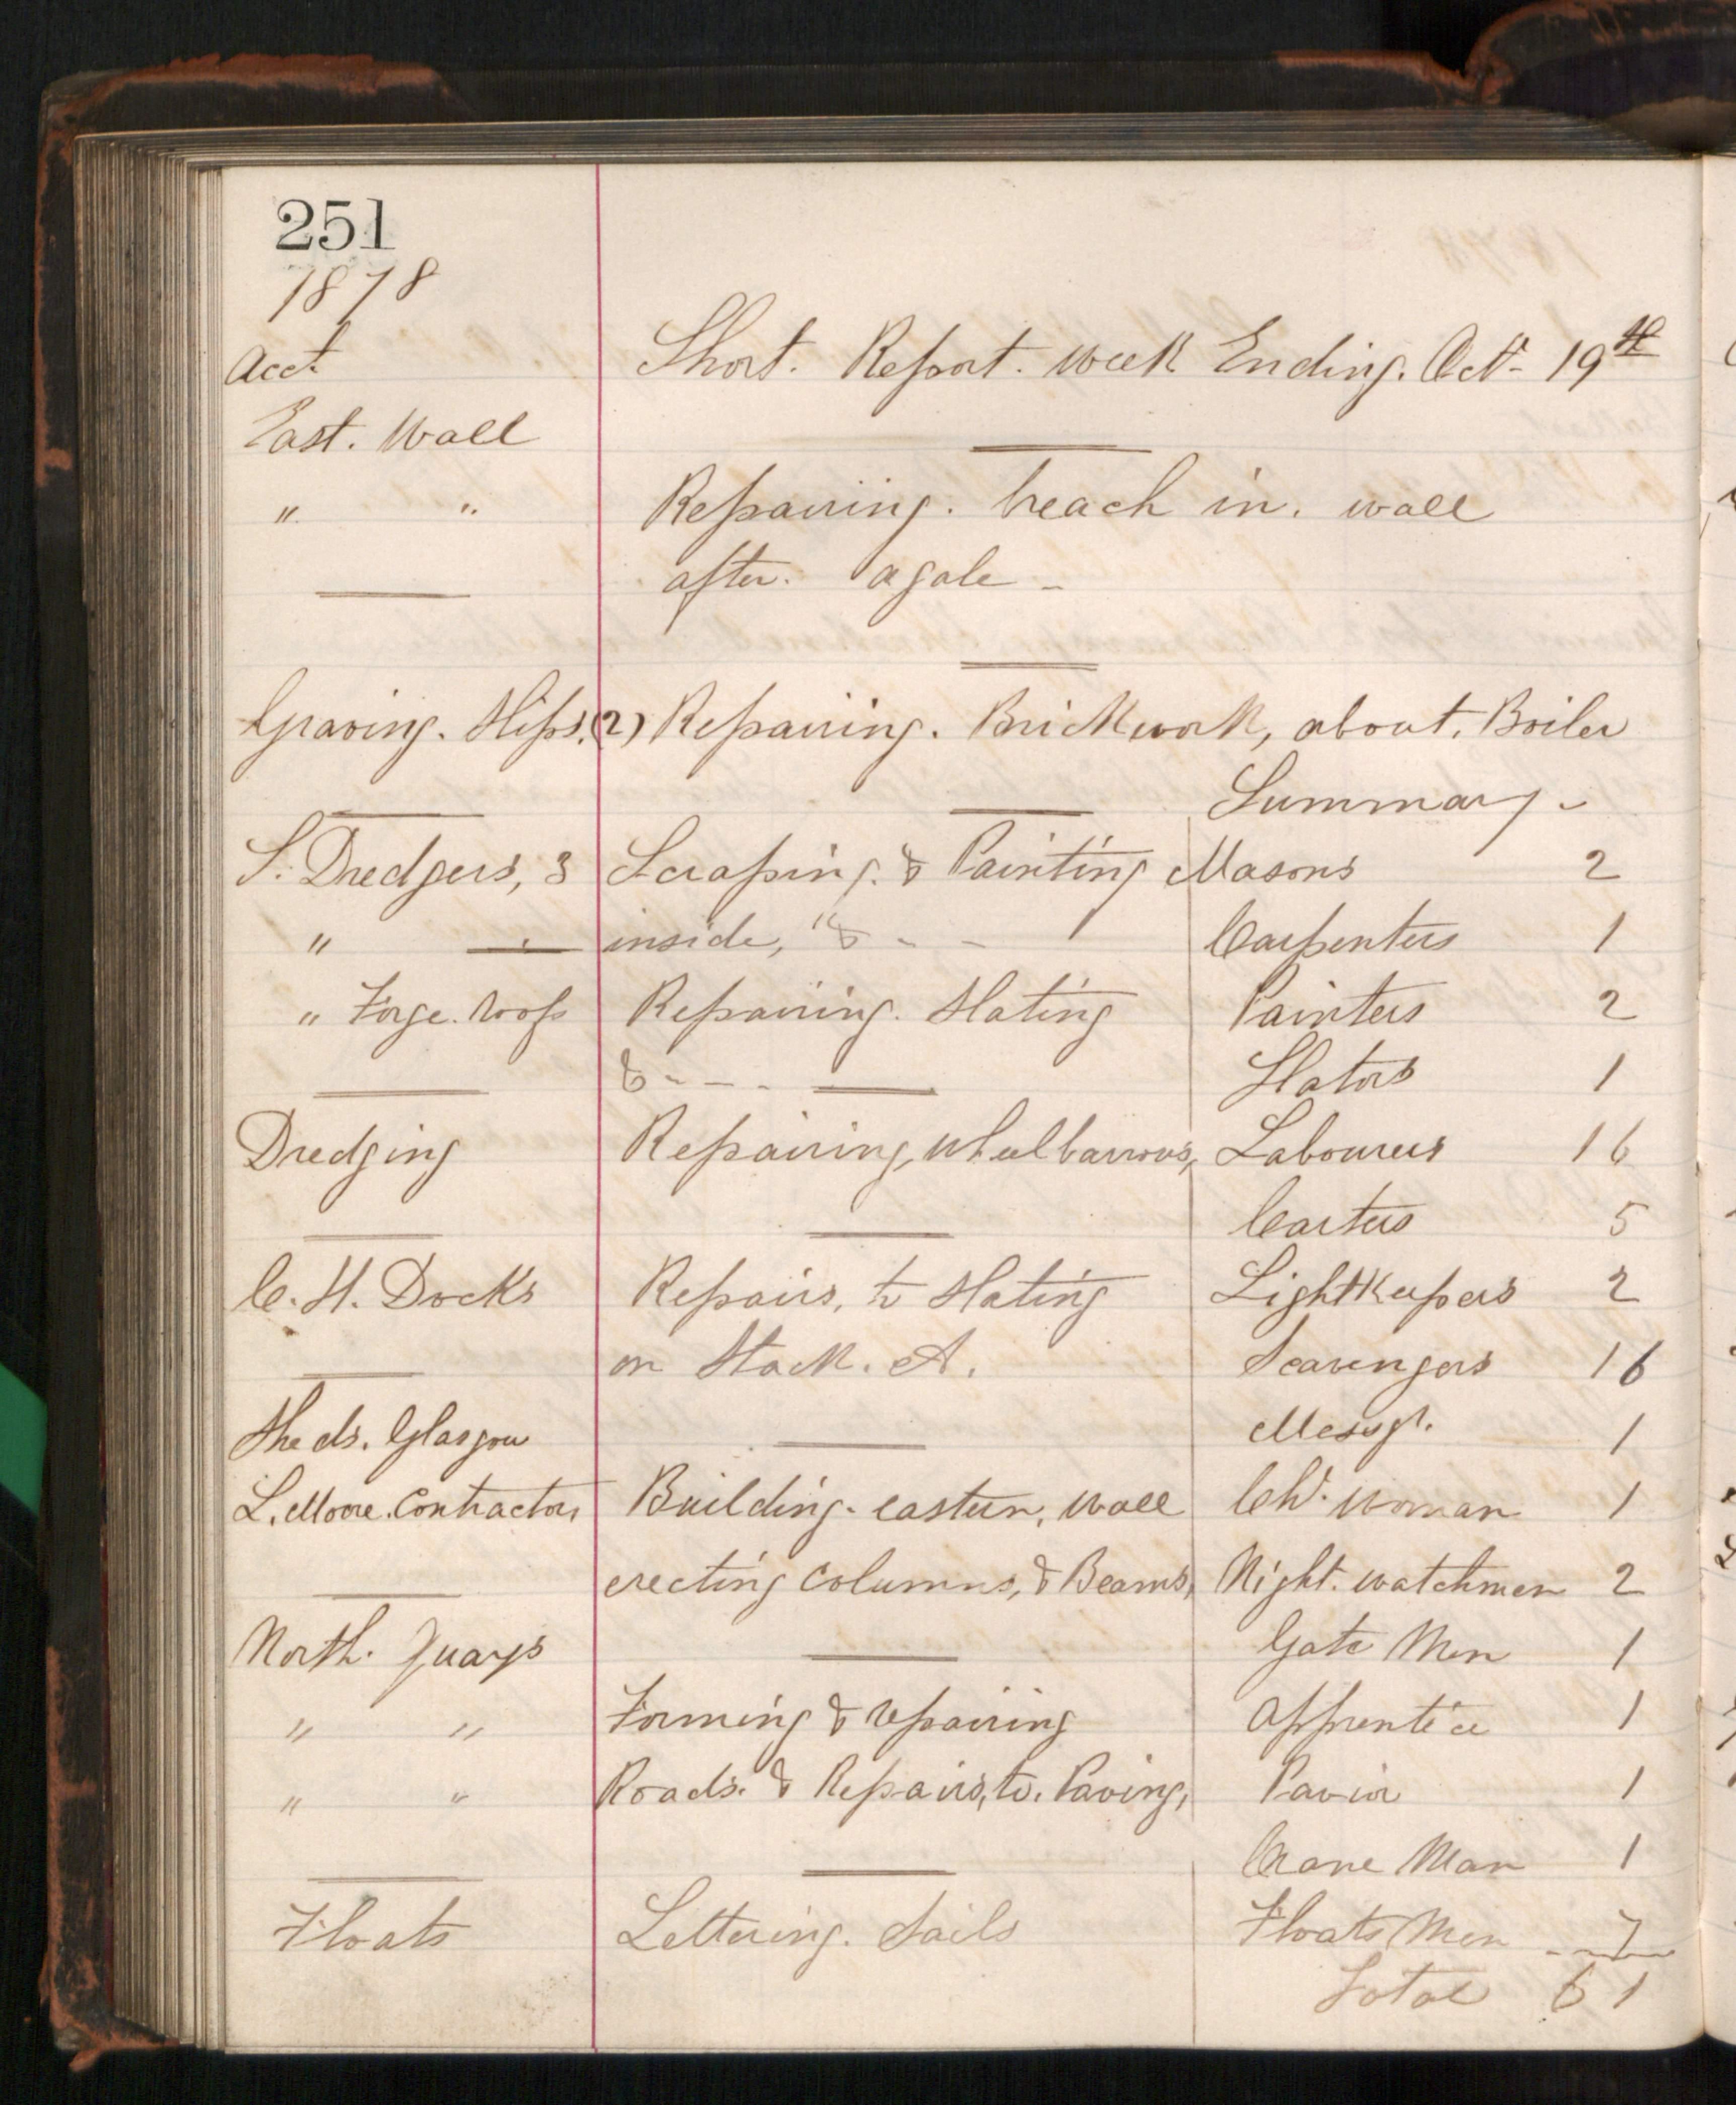 251
1878
Acct. Short. Report. Week Ending. Oct. 19th
East. Wall
" " Repairing. breach in. wall
after. a gale -
Graving. Slips. (2) Repairing. Brickwork, about. Boiler
Summary -
S. Dredgers, 3 Scraping. & Painting Masons 2
" inside, & - - Carpenters 1
" Forge. Roof Repairing. Slating Painters 2
& - - - Slators 1
Dredging Repairing, wheelbarrows, Labourers 16
Carters 5
C. H. Docks Repairs, to Slating LightKeepers 2
on Stack. A. Scavengers 16
Sheds. Glasgow Messgr. 1
L. Moore. Contractor, Building. eastern, wall Ch. woman 1
erecting columns, & Beams, Night. watchmen 2
North. Quays Gate Men 1
" " Forming & repairing Apprentice 1
" " Roads. & Repairs, to. Paving, Pavior 1
Crane Man 1
Floats Lettering. Sails Floats Men 7
Total 61